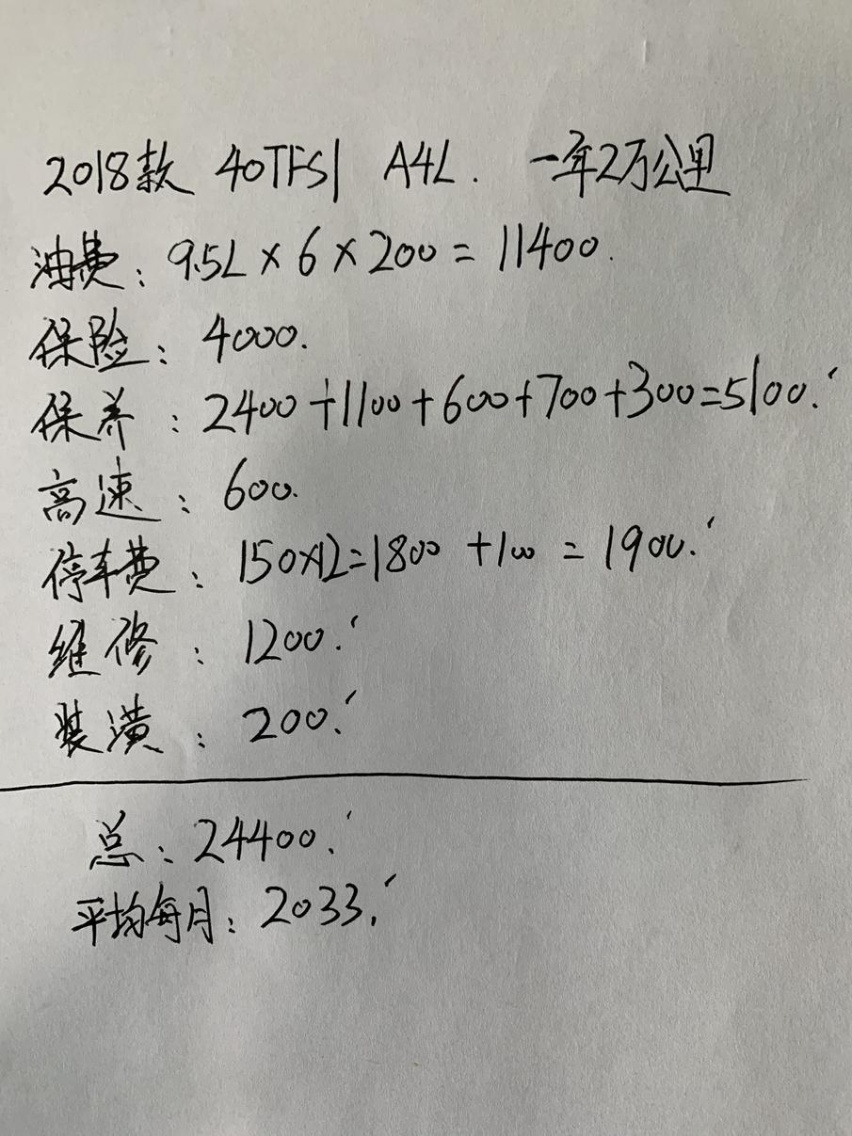 2018款 40TFSI A4L. 一年2万公里
油费: 9.5L×6×200=11400.
保险: 4000.
保养: 2400+1100+600+700+300=5100.
高速: 600.
停车费: 150×12=1800 +100 = 1900.
维修: 1200.
装潢: 200.
总: 24400.
平均每月: 2033.